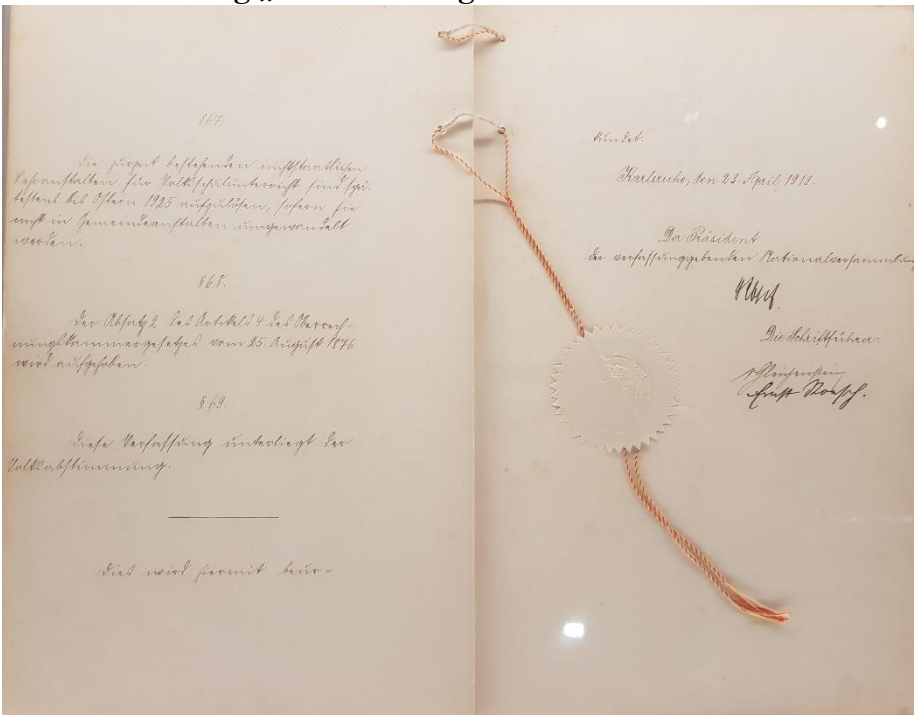 § 67.
Die zurzeit bestehenden nichtstaatlichen
Lehranstalten für Volksschulunterricht sind spä-
testens bis Ostern 1925 aufzulösen, sofern sie
nicht in Gemeindeanstalten umgewandelt
werden.
§ 68.
Der Absatz 2 des Artikels 4 des Oberrech-
nungskammergesetzes vom 25. August 1876
wird aufgehoben.
§ 69.
Diese Verfassung unterliegt der
Volksabstimmung.
Dies wird hiermit beur-
kundet.
Karlsruhe, den 23. April 1919.
Der Präsident
der verfassunggebenden Nationalversammlung
Die Schriftführer:
Ernst